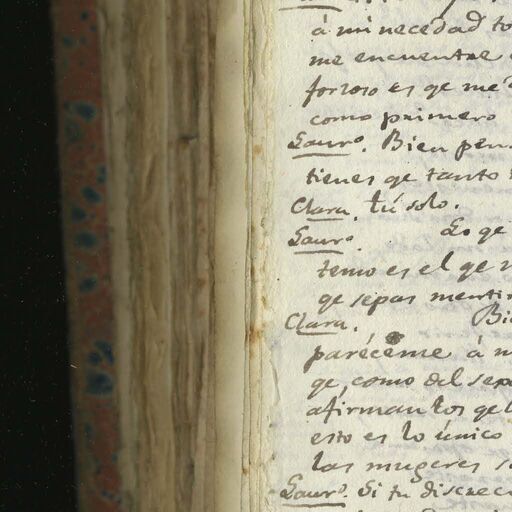 á mi necedad to
me encuentre
forzoso es qe me
como primero
Laurº. Bien pen
tienes qe tanto
Clara. tú solo.
Laurº. Lo qe
temo es el qe
qe sepas mentir
Clara. Bi
paréceme á m
qe, como del sexo
afirman los qe l
esto es lo único
las mugeres s
Laurº. Si tu discrec